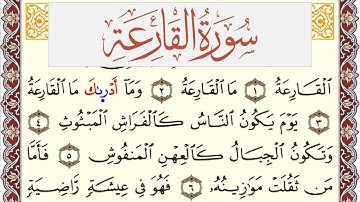 سُورَةُ القَارِعَةِ
ٱلْقَارِعَةُ ١ مَا ٱلْقَارِعَةُ ٢ وَمَآ أَدْرَىٰكَ مَا ٱلْقَارِعَةُ
٣ يَوْمَ يَكُونُ ٱلنَّاسُ كَٱلْفَرَاشِ ٱلْمَبْثُوثِ ٤
وَتَكُونُ ٱلْجِبَالُ كَٱلْعِهْنِ ٱلْمَنفُوشِ ٥ فَأَمَّا
مَن ثَقُلَتْ مَوَٰزِينُهُۥ ٦ فَهُوَ فِى عِيشَةٍ رَّاضِيَةٍ